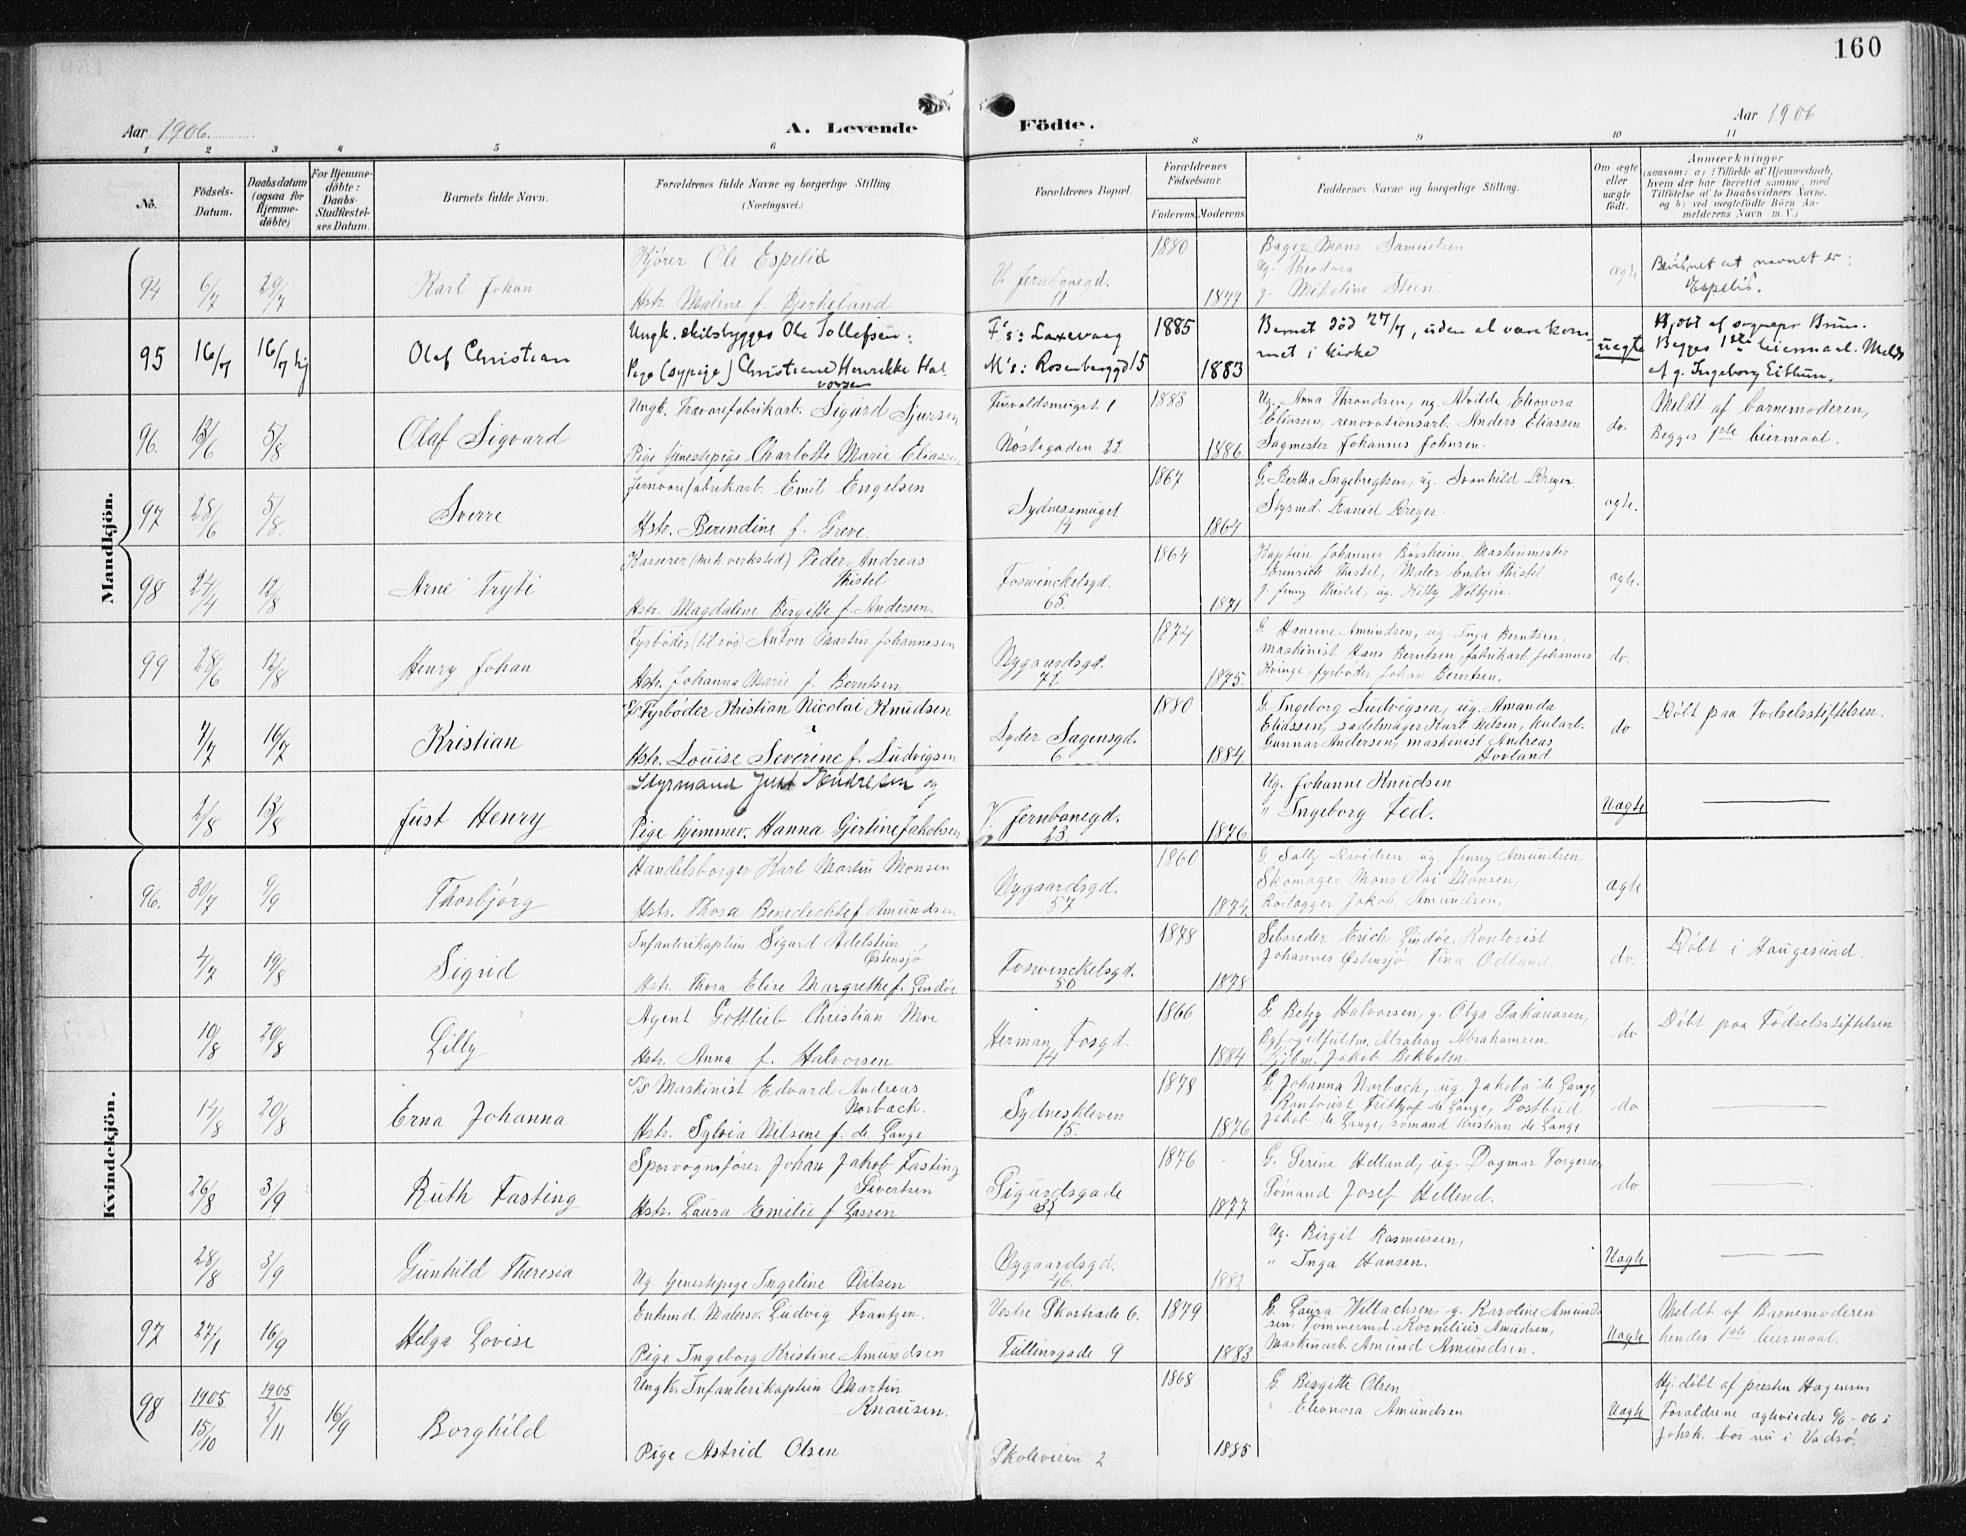 160
Aar 1906.
A. Levende Födte.
Aar 1906
1 2 3 4 5 6 7 8 9 10 11
No.
Födsels-Datum.
Daabsdatum (ogsaa for Hjemmedöbte)
For Hjemmedöbte: Daabs-Stadfæstelses Datum.
Barnets fulde Navn.
Forældrenes fulde Navne og borgerlige Stilling. (Næringsvei.)
Forældrenes Bopæl.
Forældrenes Födselsaar.
Faderens. Moderens.
Faddernes Navne og borgerlige Stilling.
Om ægte eller uægte födt.
Anmærkninger
(saasom: a) i Tilfælde af Hjemmedaab, hvem der har forrettet samme, med Tilföielse af to Daabsvidners Navne, og b) ved uægtefödte Börn Anmelderens Navn m. V.)
Mandkjön.
94 6/7 29/7 Karl Johan
Kjører Ole Espelid
Hstr. Malene f. Bjerkeland
V. Jernbanegd. 11
1880 1877
Bager Mons Samuelsen
Ug. Theodora
g. Nikoline Steen.
ægte
Bevisnet at navnet er: Espelid.
95 16/7 16/7 hj Olaf Christian
Ungk. skibsbygger Ole Tollefsen:
Pige (sypige) Christiane Henrikke Halvorsen
F's: Laxevaag
M's: Rosenberggd 15
1885 1883
Barnet død 27/7, uden at være kommet i kirke
uægte
Hj. døbt af sognepr. Bruun.
Begges 1ste leiermaal. Meldt
af g. Ingeborg Eithun.
96. 13/6 5/8 Olaf Sigvard
Ungk. Trævarefabrikarb. Sigurd Sjursen
Pige tjenestepige Charlotte Marie Eliassen
1
Nøstegaden 22
1883 1886
Ug. Anna Throndsen, ug. Alvilde Eleonora
Eliassen, renovationsarb. Anders Eliassen
Sagmester Johannes Johnsen.
do.
Meldt af barnemoderen,
Begges 1ste leiermaal.
97 28/6 5/8. Sverre
Jernvarefabrikarb. Emil Engelsen
Hstr. Berendine f. Greve.
Sydnessmuget 14
1867 1864
G. Bertha Ingebregtsen, ug. Svanhild Dreyer
Styrmd. Daniel Dreyer.
ægte.
98 24/4 12/8 Arne Tryti
Kasserer (mek verksted) Peder Andreas Thistel
Hstr. Magdalene Birgitte f. Andersen.
Foswinckelsgd. 65.
1864 1871
Kaptein Johannes Børsheim, Maskinmester
Thistel, Maler Endre Thistel
g. Jenny Thistel, ug. Kitty
ægte.
99 28/6 12/8 Henry Johan
Fyrbøder (til søs) Anton Martin Johannesen
Hstr. Johanna Marie f. Berntsen.
Nygaardsgd. 72
1874 1875.
G. Hanrine Amundsen, ug. Inga Berntsen,
maskinist Hans Berntsen, fabrikarb. Johannes
Kvinge, fyrbøder Johan Berntsen.
do.
7/7 16/7 Kristian
D/S Fyrbøder Kristian Nicolai Knudsen
Hstr. Louise Severine f. Ludvigsen
Lyder Sagensgd. 6
1880 1884.
G. Ingeborg Ludvigsen, ug. Amanda
Eliassen, sadelmager Karl Nilsen, kularb.
Gunnar Andersen, maskinist Andreas Hovland
do
Døbt paa Fødselsstiftelsen.
2/8 13/8 Just Henry
Styrmand Just Andresen og
Pige hjemmev. Hanna Gjertine Jakobsen
V. Jernbanegd. 23.
1876
Ug. Johanne Knudsen
" Ingeborg Fed.
Uægte
Kvindekjön.
96. 30/7 9/9 Thorbjørg
Handelsborger Karl Martin Monsen
Hstr. Thora Benedichte f. Amundsen
Nygaardsgd. 57
1860 1874
G. Sally Davidsen, ug. Jenny Amundsen,
Skomager Mons Olai Monsen,
Rørlægger Jakob Amundsen.
ægte
4/7 19/8 Sigrid
Infanterikaptein Sigurd Adelstein Østensjø
Hstr. Thora Elise Margrethe f. Lindøe
Foswinckelsgd. 50
1878 1878
Skibsreder Erich Lindøe, Kontorist
Johannes Østensjø. Tina Odland
do.
Døbt i Haugesund.
10/8 20/8 Lilly
Agent Gottlieb Christian Moe
Hstr. Anna f. Halvorsen.
Herman Fosgd. 14
1866 1884
G. Betzy Halvorsen, g. Olga Sakariasen,
Byfogedfuldm. Abraham Abrahamsen,
Kjøbm. Jakob Bekholen.
do
Døbt paa Fødselsstiftelsen
14/8 20/8 Erna Johanna
D/S Maskinist Edvard Andreas Norback.
Hstr. Sylvia Nilsene f. de Lange
Sydneskleven 15.
1878 1876
G. Johanna Norback, ug. Jakoba de Lange,
Kontorist Fritjof de Lange, Postbud
Jakob de Lange, sømand Kristian de Lange
do
26/8 3/9 Ruth Fasting
Sporvognsfører Johan Jakob Fasting Sivertsen
Hstr. Laura Emilie f. Larsen
Sigurdsgade
1876 1877
G. Serine Helland, ug. Dagmar Torgersen
Sømand Josef Hellend.
do
28/8 3/9 Gunhild Theresia
Ug. tjenestepige Ingeline Nilsen
Nygaardsgd. 46.
1882
Ug. Birgit Rasmussen,
" Inga Hansen.
Uægte
97 27/1 16/9 Helga Lovise
Enkemd. Malersv. Ludvig Frantzen.
Pige Ingeborg Kristine Amundsen
Vestre Skostrade 6.
Tullinsgade 9
1879 1883
G. Laura Willachsen, g. Karoline Amundsen,
Tømmermd. Kornelius Amundsen,
Maskinarb. Amund Amundsen.
Uægte
Meldt af Barnemoderen
hendes 1ste leiermaal.
98 1905 15/10 1905 2/11 16/9 Borghild
Ungk. Infanterikaptein Martin Knausen.
Pige Astrid Olsen
Skoleveien 2
1868 1885
G. Birgitte Olsen
" Eleonora Amundsen
Uægte
Hj. døbt af presten Hagensen
Forældrene ægteviedes 6/6 - 06 i
Johsk. bor nu i Vadsø.